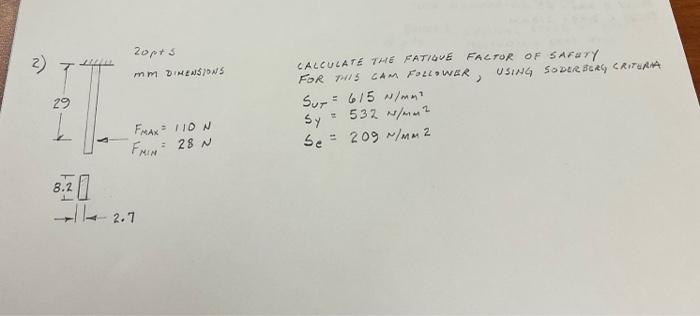 2)
20pts
mm DIMENSIONS
29
FMAX = 110 N
FMIN = 28 N
8.2
2.7
CALCULATE THE FATIQUE FACTOR OF SAFETY
FOR THIS CAM FOLLOWER, USING SODERBERG CRITERIA
SUT = 615 N/mm²
Sy = 532 N/mm²
Se = 209 N/mm2